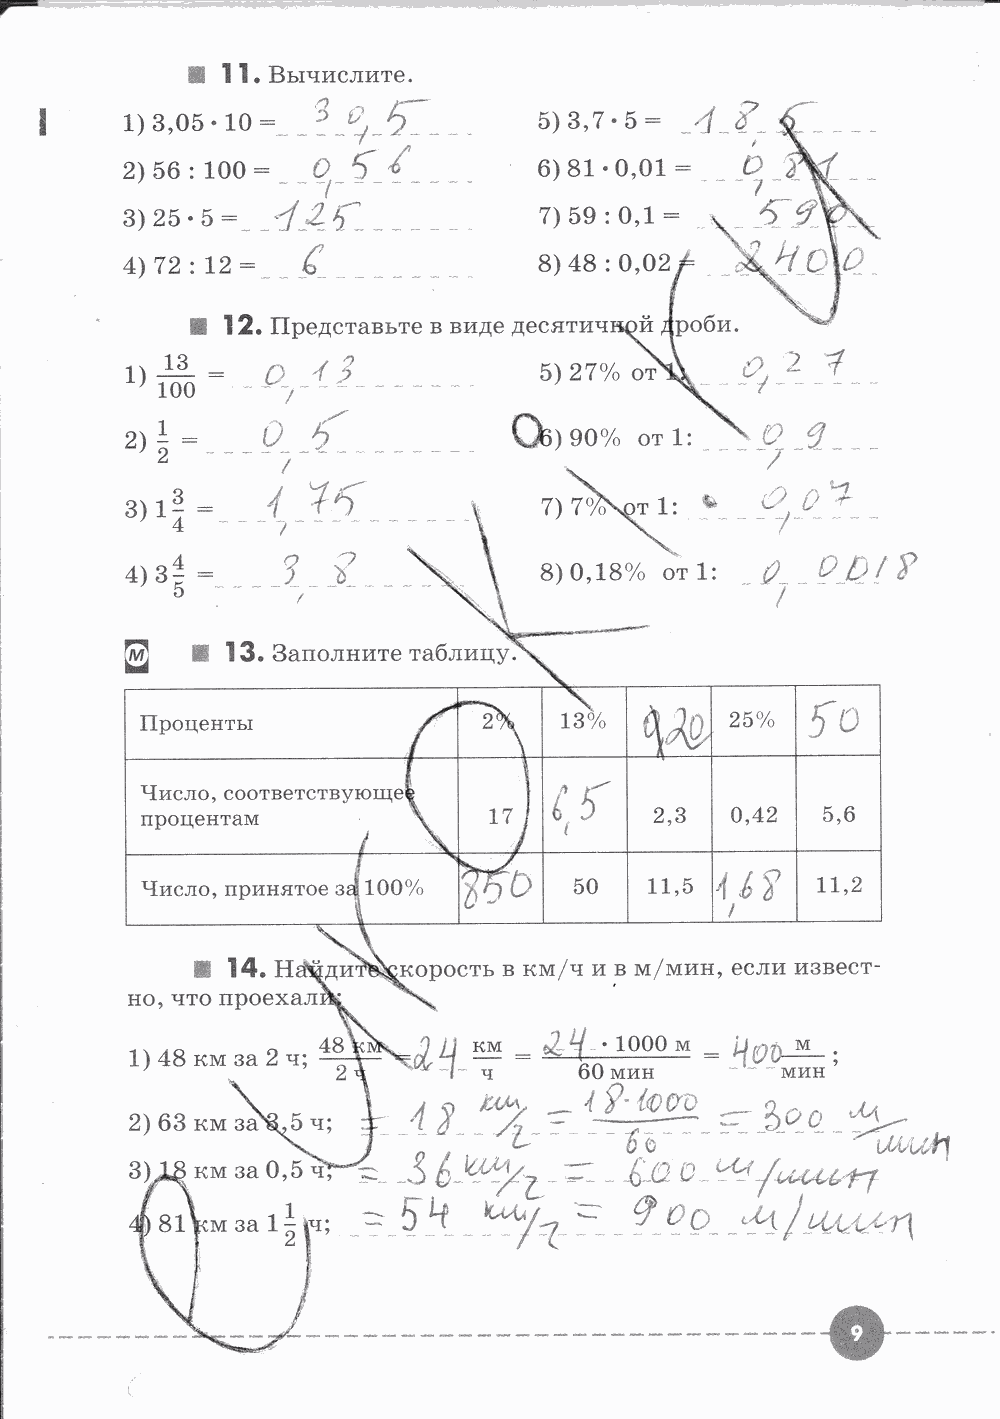 11. Вычислите.
1) 3,05 · 10 = 30,5
5) 3,7 · 5 = 18,5
2) 56 : 100 = 0,56
6) 81 · 0,01 = 0,81
3) 25 · 5 = 125
7) 59 : 0,1 = 590
4) 72 : 12 = 6
8) 48 : 0,02 = 2400
12. Представьте в виде десятичной дроби.
1) 13/100 = 0,13
5) 27% от 1: 0,27
2) 1/2 = 0,5
6) 90% от 1: 0,9
3) 1 3/4 = 1,75
7) 7% от 1: 0,07
4) 3 4/5 = 3,8
8) 0,18% от 1: 0,0018
М 13. Заполните таблицу.
Проценты 2% 13% 20 25% 50
Число, соответствующее
процентам 17 6,5 2,3 0,42 5,6
Число, принятое за 100% 850 50 11,5 1,68 11,2
14. Найдите скорость в км/ч и в м/мин, если извест-
но, что проехали:
1) 48 км за 2 ч; 48 км/2 ч = 24 км/ч = 24 · 1000 м/60 мин = 400 м/мин;
2) 63 км за 3,5 ч; = 18 км/ч = 18·1000/60 = 300 м/мин
3) 18 км за 0,5 ч; = 36 км/ч = 600 м/мин
4) 81 км за 1 1/2 ч; = 54 км/ч = 900 м/мин
9